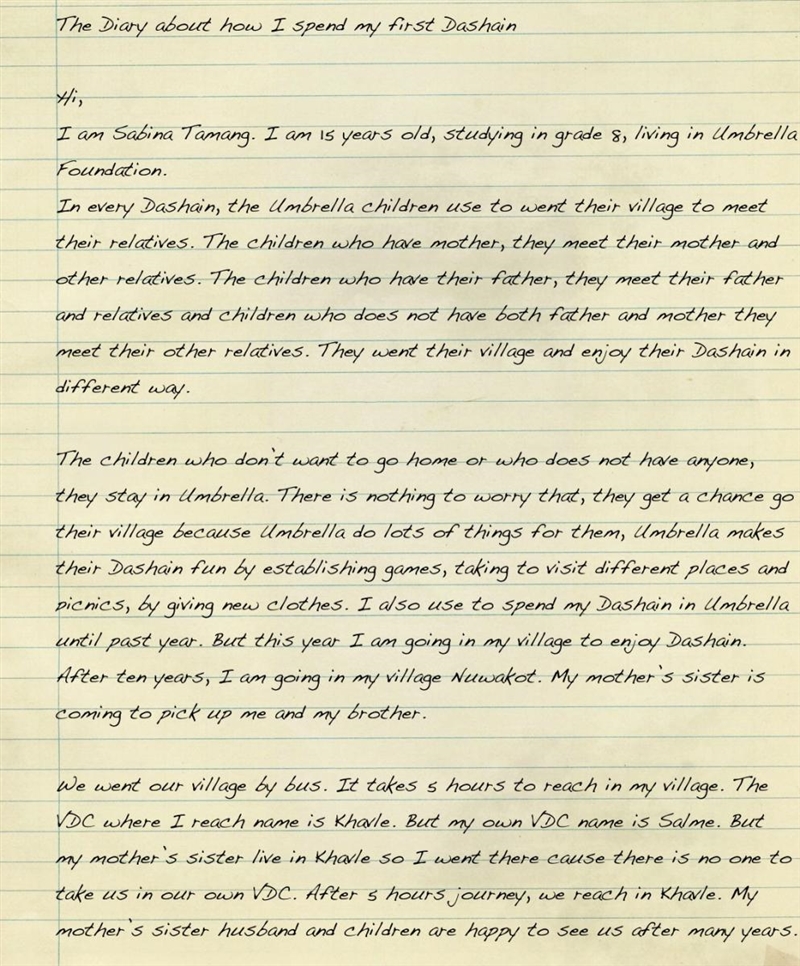 The Diary about how I spend my first Dashain
Hi,
I am Sabina Tamang. I am 15 years old, studying in grade 8, living in Umbrella
Foundation.
In every Dashain, the Umbrella children use to went their village to meet
their relatives. The children who have mother, they meet their mother and
other relatives. The children who have their father, they meet their father
and relatives and children who does not have both father and mother they
meet their other relatives. They went their village and enjoy their Dashain in
different way.
The children who don't want to go home or who does not have anyone,
they stay in Umbrella. There is nothing to worry that, they get a chance go
their village because Umbrella do lots of things for them, Umbrella makes
their Dashain fun by establishing games, taking to visit different places and
picnics, by giving new clothes. I also use to spend my Dashain in Umbrella
until past year. But this year I am going in my village to enjoy Dashain.
After ten years, I am going in my village Nuwakot. My mother's sister is
coming to pick up me and my brother.
We went our village by bus. It takes 5 hours to reach in my village. The
VDC where I reach name is Khavle. But my own VDC name is Salme. But
my mother's sister live in Khavle so I went there cause there is no one to
take us in our own VDC. After 5 hours journey, we reach in Khavle. My
mother's sister husband and children are happy to see us after many years.